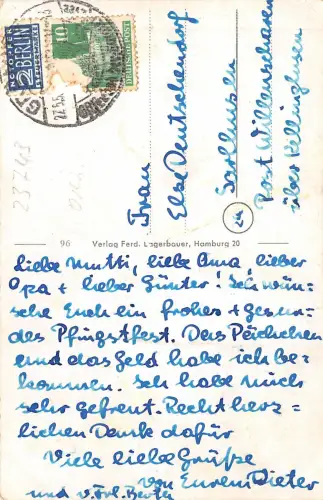 NOTOPFER
2 BERLIN
STEUERMARKE
10
DEUTSCHE POST
23743
Frau
Else Deutschendorf
Sarlhusen
24
Post Willenscharen
über Kellinghusen
96 Verlag Ferd. Lagerbauer, Hamburg 20
Liebe Mutti, liebe Oma, lieber
Opa + lieber Günter! Ich wün-
sche Euch ein frohes + gesun-
des Pfingstfest. Das Päckchen
und das Geld habe ich be-
kommen. Ich habe mich
sehr gefreut. Recht herz-
lichen Dank dafür
Viele liebe Grüße
von Eurem Dieter
und v. Frl. Berta